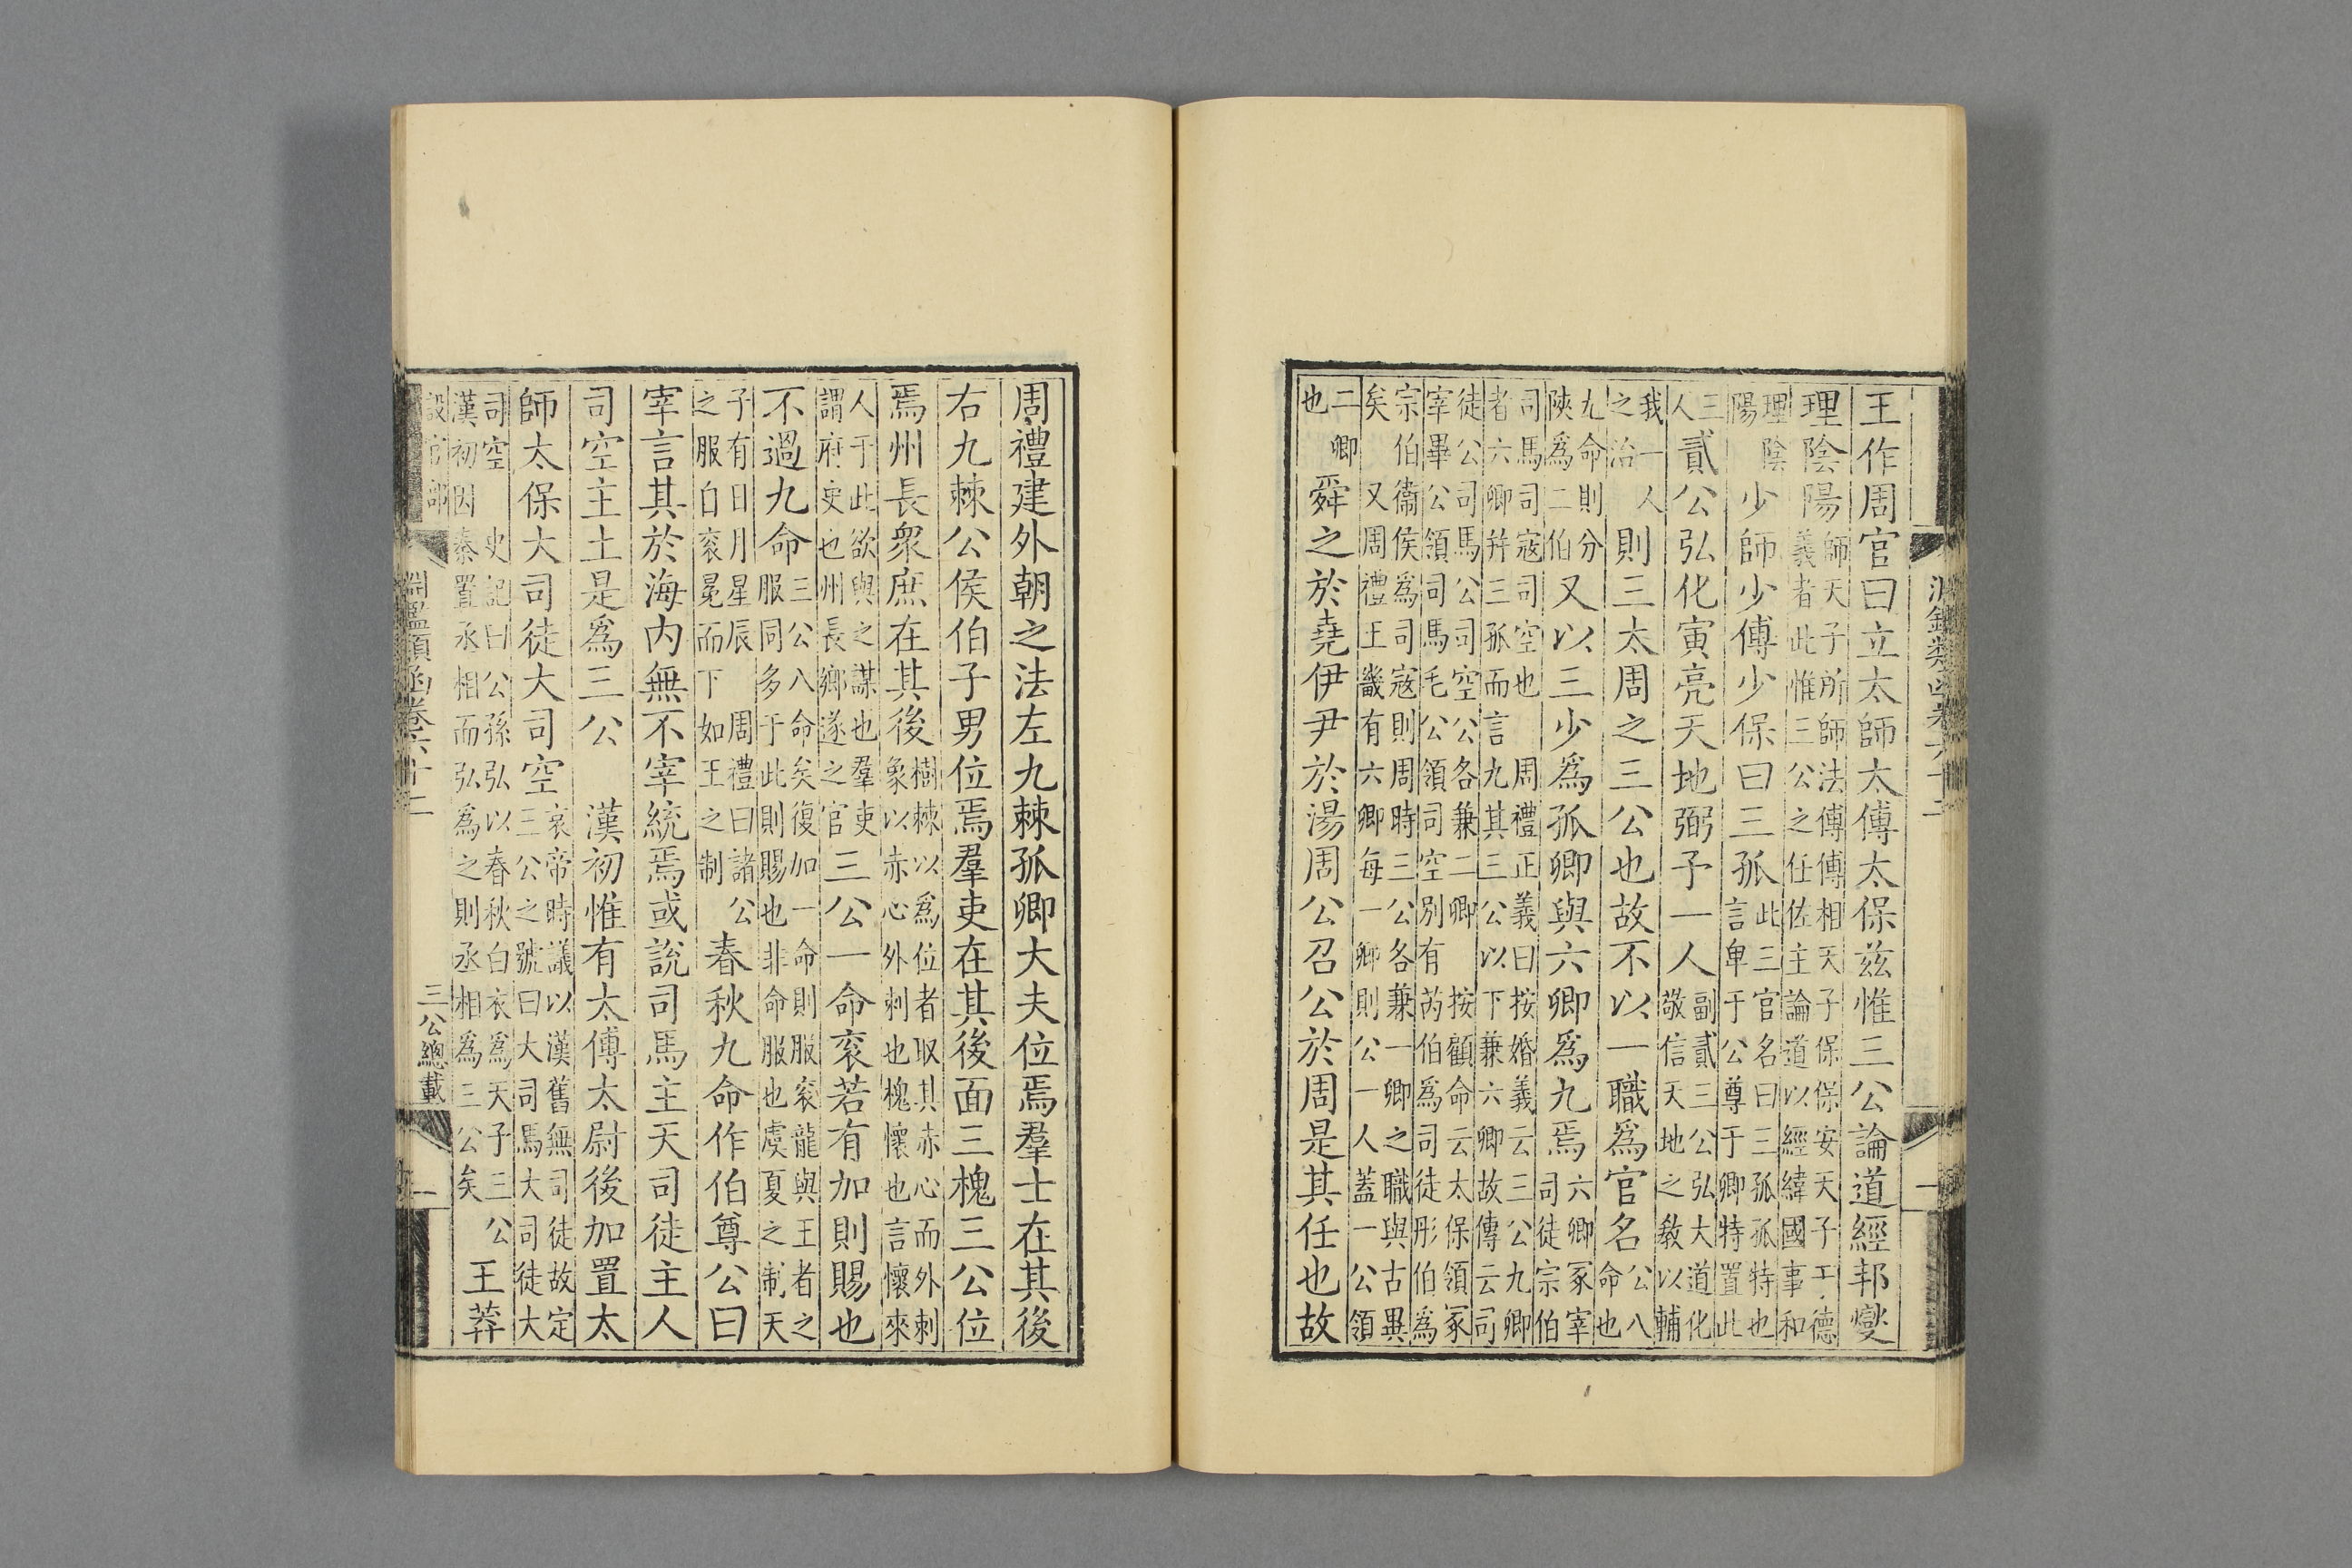 淵鑑類函卷六十二
一
王作周官曰立太師太傅太保兹惟三公論道經邦燮
理陰陽師天子所師法傅傅相天子保保安天子于德
義者此惟三公之任佐主論道以經緯國事和
理陰
陽少師少傅少保曰三孤此三官名曰三孤孤特也
言卑于公尊于卿特置此
三
人貳公弘化寅亮天地弼予一人副貳三公弘大道化
敬信天地之教以輔
我一人
之治則三太周之三公也故不以一職爲官名公八
命也
九命則分
陝爲二伯又以三少爲孤卿與六卿爲九焉六卿冢宰
司徒宗伯
司馬司寇司空也　周禮正義曰按婚義云三公九卿
者六卿并三孤而言九其三公以下兼六卿故傳云司
徒公司馬公司空公各兼二卿　按顧命云太保領冢
宰畢公領司馬毛公領司空別有芮伯爲司徒彤伯爲
宗伯衞侯爲司寇則周時三公各兼一卿之職與古異
矣又周禮王畿有六卿每一卿則公一人蓋一公領
二卿
也舜之於堯伊尹於湯周公召公於周是其任也故
周禮建外朝之法左九棘孤卿大夫位焉羣士在其後
右九棘公侯伯子男位焉羣吏在其後面三槐三公位
焉州長衆庶在其後樹棘以爲位者取其赤心而外刺
象以赤心外刺也槐懷也言懷來
人于此欲與之謀也羣吏
謂府吏也州長鄉遂之官三公一命衮若有加則賜也
不過九命三公八命矣復加一命則服衮龍與王者之
服同多于此則賜也非命服也虞夏之制天
子有日月星辰　周禮曰諸公
之服自衮冕而下如王之制春秋九命作伯尊公曰
宰言其於海内無不宰統焉或說司馬主天司徒主人
司空主土是爲三公　漢初惟有太傅太尉後加置太
師太保大司徒大司空哀帝時議以漢舊無司徒故定
三公之號曰大司馬大司徒大
司空　史記曰公孫弘以春秋白衣爲天子三公
漢初因秦置丞相而弘爲之則丞相爲三公矣王莽
設官部
淵鑑類函卷六十二
三公總載
一